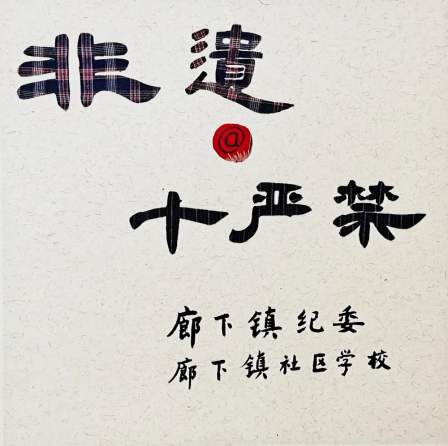 非遗
@
十严禁
廊下镇纪委
廊下镇社区学校